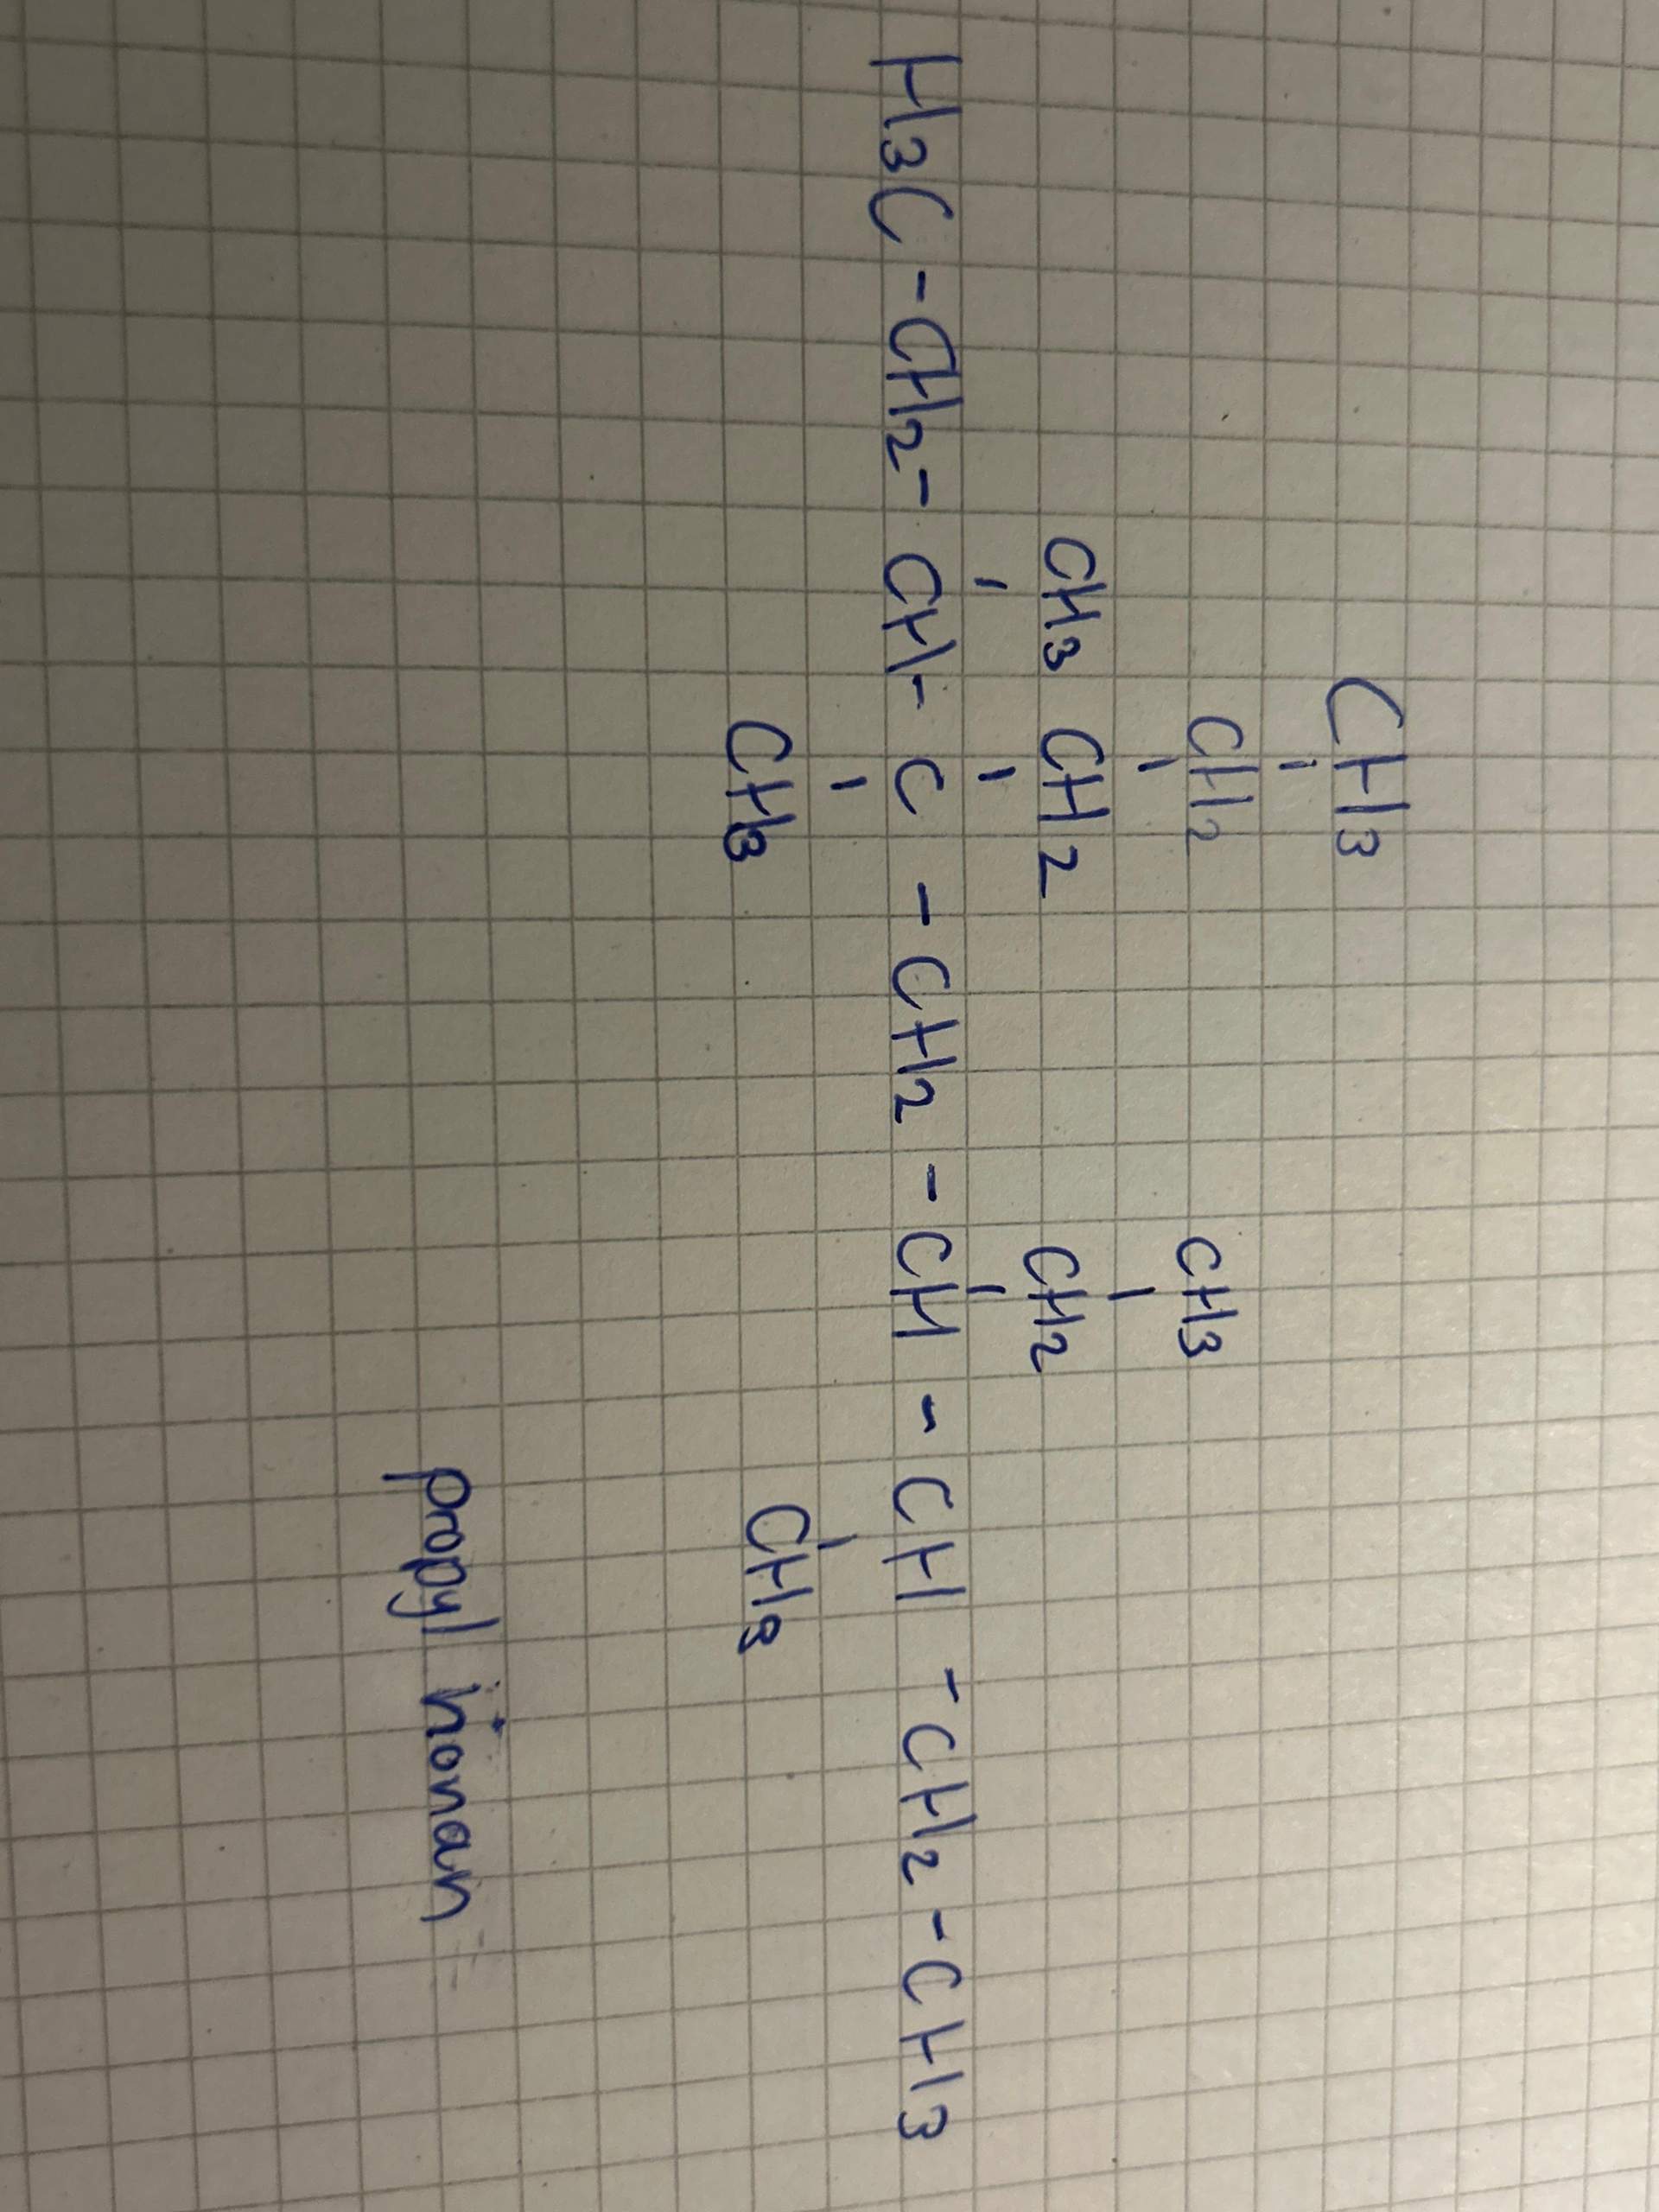 CH3
CH2 CH3
CH3 CH2 CH2
H3C - CH2 - CH - C - CH2 - CH - CH - CH2 - CH3
CH3 CH3
propyl nonan